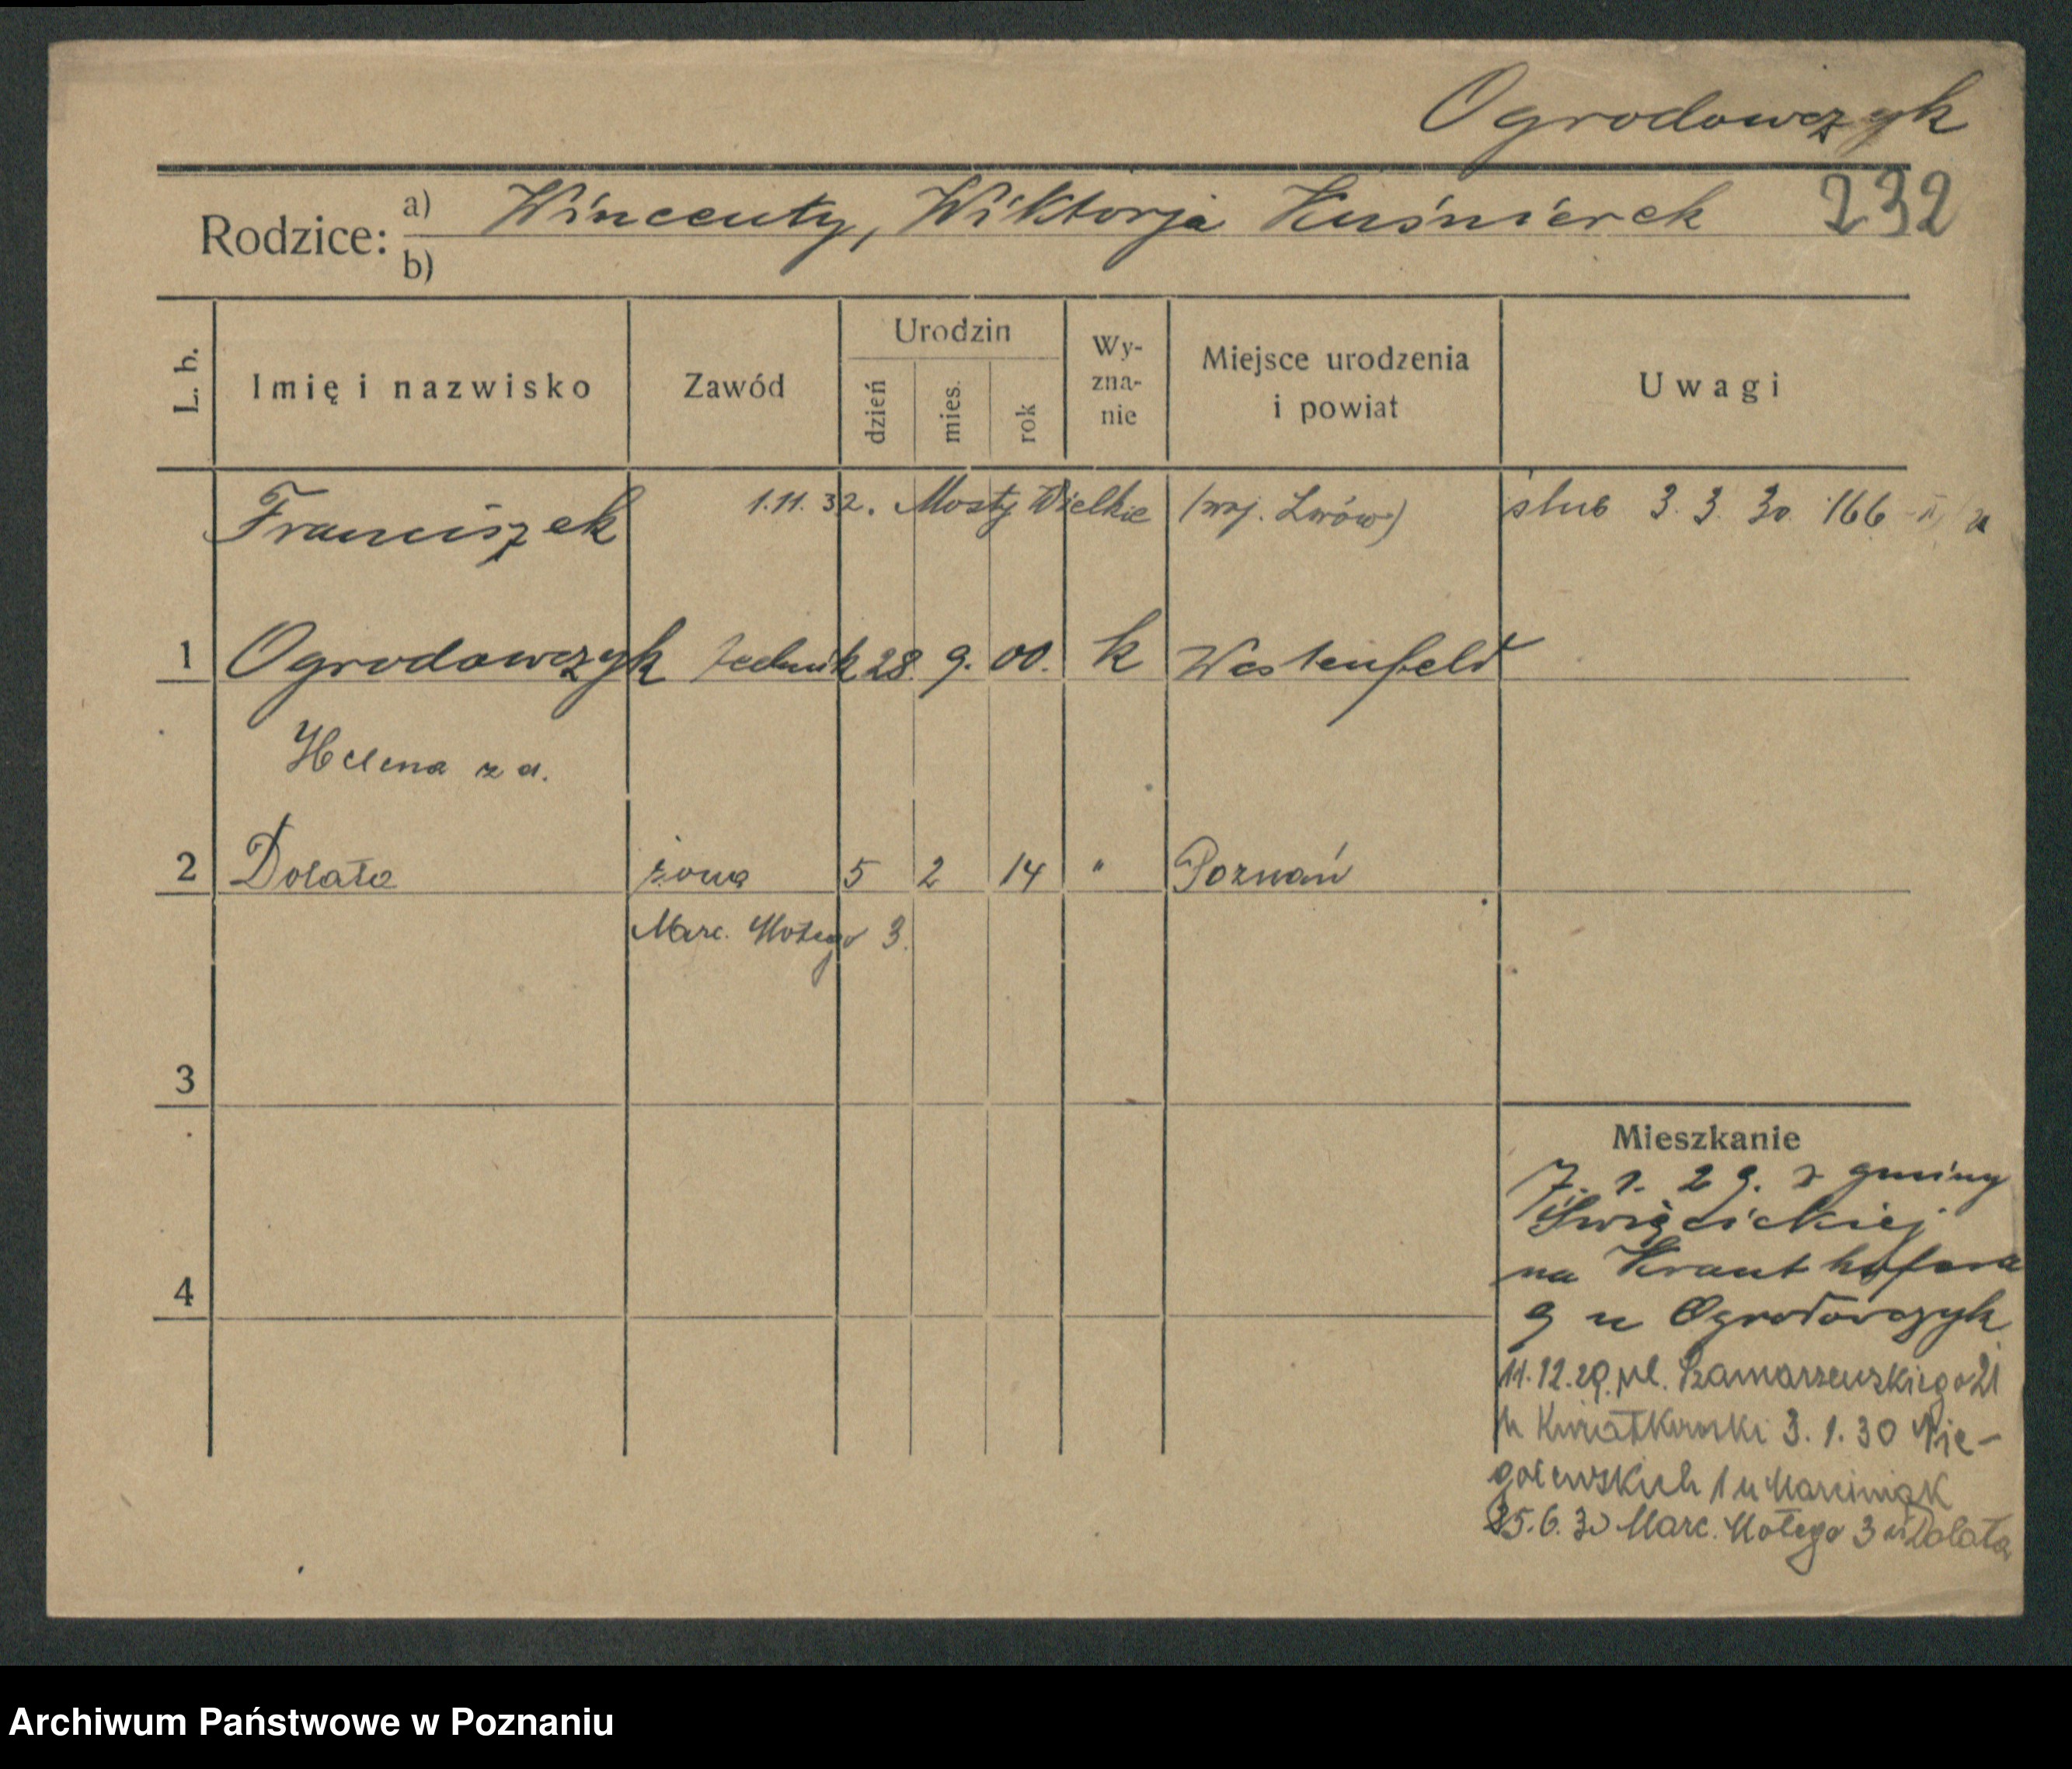 Ogrodowczyk
Rodzice: a) Wincenty, Wiktorja Kuśnierek 232
b)
L. b. Imię i nazwisko Zawód Urodzin dzień mies. rok Wy-zna-nie Miejsce urodzenia i powiat Uwagi
Franciszek 1.11.32. Mosty Wielkie (woj. Lwów) ślub 3. 3. 30. 166
1 Ogrodowczyk technik 28. 9. 00. k Westenfeld
Helena z d.
2 Dolata żona 5 2 14 " Poznań
Marc. Mottego 3.
3
Mieszkanie
7. 1. 29. z gminy
Święcickiej
na Krauthofera
4
9 u Ogrodowczyk
11.12.29. pl. Szamarzewskiego 21
u Kwiatkowski 3. 1. 30 Nie-
golewskich 1 u Marciniak
25.6.30 Marc. Mottego 3 u Dolata
Archiwum Państwowe w Poznaniu